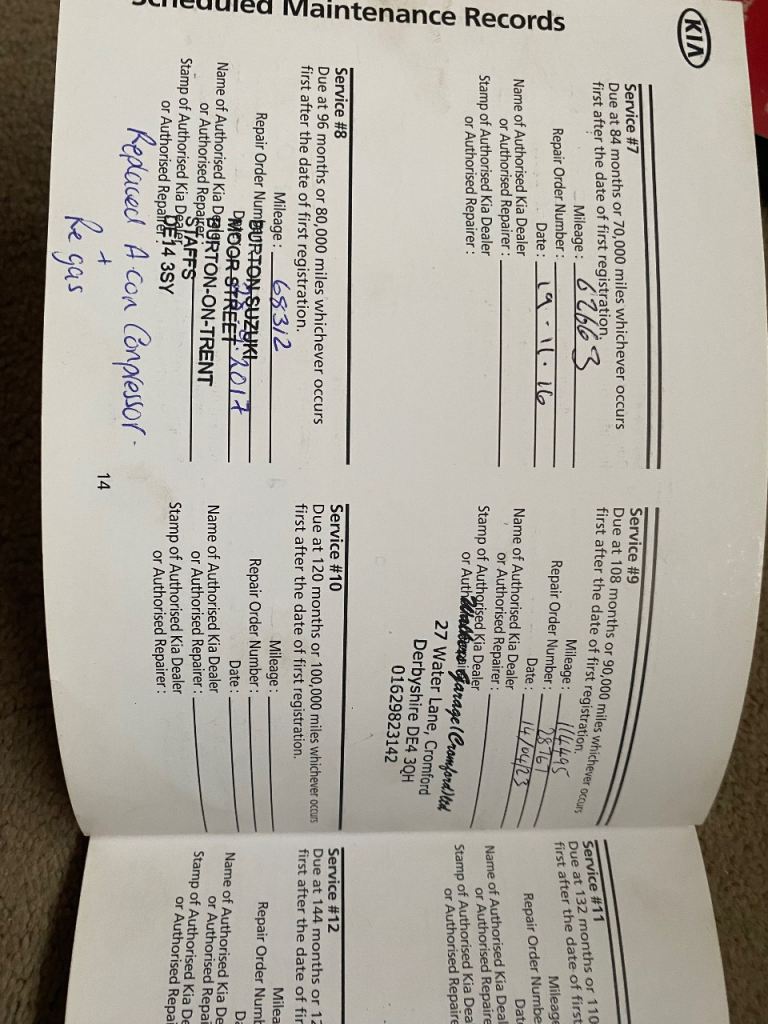 Scheduled Maintenance Records
KIA
Service #7
Due at 84 months or 70,000 miles whichever occurs
first after the date of first registration.
Mileage : 62663
Repair Order Number :
Date : 19.11.16
Name of Authorised Kia Dealer
or Authorised Repairer :
Stamp of Authorised Kia Dealer
or Authorised Repairer :
Service #8
Due at 96 months or 80,000 miles whichever occurs
first after the date of first registration.
Mileage : 68312
Repair Order Number :
BURTON SUZUKI
Date : 2017
MOOR STREET
Name of Authorised Kia Dealer
BURTON-ON-TRENT
or Authorised Repairer :
STAFFS
Stamp of Authorised Kia Dealer
DE14 3SY
or Authorised Repairer :
Replaced A con Compressor.
+
Re gas
14
Service #9
Due at 108 months or 90,000 miles whichever occurs
first after the date of first registration.
Mileage : 114495
Repair Order Number : 28767
Date : 14/04/23
Name of Authorised Kia Dealer
or Authorised Repairer :
Stamp of Authorised Kia Dealer
or Authorised Repairer :
Garage (Cromford) Ltd
27 Water Lane, Cromford
Derbyshire DE4 3QH
01629823142
Service #10
Due at 120 months or 100,000 miles whichever occurs
first after the date of first registration.
Mileage :
Repair Order Number :
Date :
Name of Authorised Kia Dealer
or Authorised Repairer :
Stamp of Authorised Kia Dealer
or Authorised Repairer :
Service #11
Due at 132 months or 110
first after the date of first
Mileage
Repair Order Numbe
Date
Name of Authorised Kia Deal
or Authorised Repaire
Stamp of Authorised Kia Dea
or Authorised Repaire
Service #12
Due at 144 months or 12
first after the date of fir
Milea
Repair Order Numb
Da
Name of Authorised Kia De
or Authorised Repai
Stamp of Authorised Kia De
or Authorised Repai